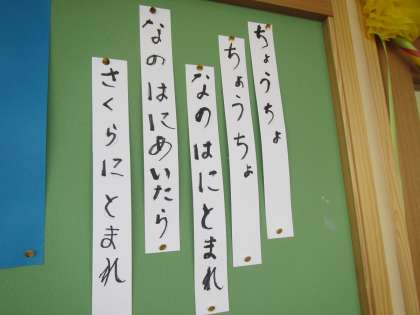 ちょうちょ
ちょうちょ
なのはにとまれ
なのはにめいたら
さくらにとまれ